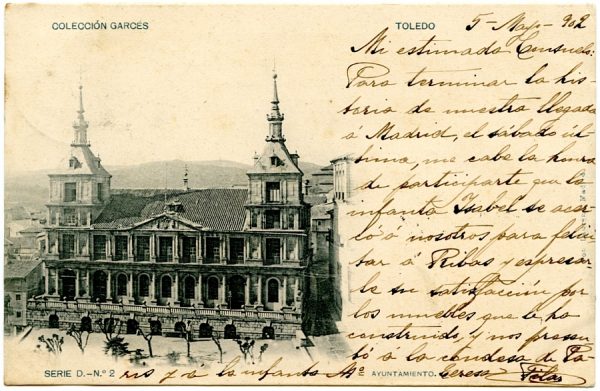 COLECCIÓN GARCÉS
TOLEDO
5 - Mayo - 902
Mi estimada Consuelo:
Para terminar la his-
toria de nuestra llegada
á Madrid, el sábado úl-
timo, me cabe la honra
de participarte que la
infanta Isabel se acer-
có á nosotros para felici-
tar á Ribas y expresar-
le su satisfacción por
los muebles que le ha
construido, y nos presen-
tó á la condesa de Pa-
rís y á la infanta Mª Teresa.
SERIE D.-N.º 2
AYUNTAMIENTO.